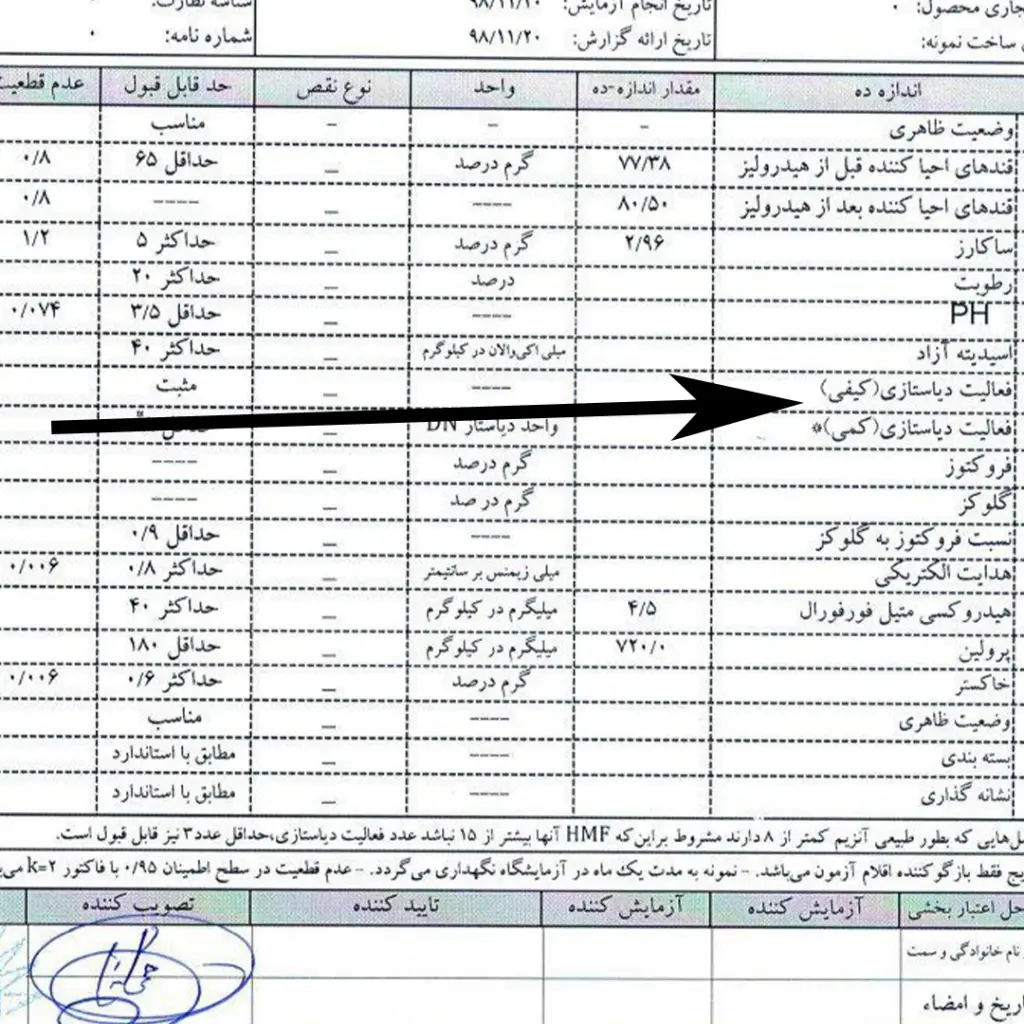 تاریخ انجام آزمایش: ۹۸/۱۱/۱۰
جاری محصول: ۰
شماره نامه: ۰
تاریخ ارائه گزارش: ۹۸/۱۱/۲۰
ساخت نمونه:
اندازه ده مقدار اندازه-ده واحد نوع نقص حد قابل قبول عدم قطعیت
وضعیت ظاهری – – – مناسب
قندهای احیا کننده قبل از هیدرولیز ۷۷/۳۸ گرم درصد – حداقل ۶۵ ۰/۸
قندهای احیا کننده بعد از هیدرولیز ۸۰/۵۰ ---- – ---- ۰/۸
ساکارز ۲/۹۶ گرم درصد – حداکثر ۵ ۱/۲
رطوبت درصد – حداکثر ۲۰
PH ---- – حداقل ۳/۵ ۰/۰۷۴
اسیدیته آزاد میلی اکی‌والان در کیلوگرم – حداکثر ۴۰
فعالیت دیاستازی(کیفی) ---- – مثبت
فعالیت دیاستازی(کمی)* واحد دیاستاز DN حداقل
فروکتوز گرم درصد – ----
گلوکز گرم در صد – ----
نسبت فروکتوز به گلوکز ---- – حداقل ۰/۹
هدایت الکتریکی میلی زیمنس بر سانتیمتر – حداکثر ۰/۸ ۰/۰۰۶
هیدروکسی متیل فورفورال ۴/۵ میلیگرم در کیلوگرم – حداکثر ۴۰
پرولین ۷۲۰/۰ میلیگرم در کیلوگرم – حداقل ۱۸۰
خاکستر گرم درصد – حداکثر ۰/۶ ۰/۰۰۶
وضعیت ظاهری ---- – مناسب
بسته بندی ---- – مطابق با استاندارد
نشانه گذاری ---- – مطابق با استاندارد
که بطور طبیعی آنزیم کمتر از ۸ دارند مشروط براین‌که HMF آنها بیشتر از ۱۵ نباشد عدد فعالیت دیاستازی،حداقل عدد۳ نیز قابل قبول است.
فقط بازگوکننده اقلام آزمون می‌باشد. - نمونه به مدت یک ماه در آزمایشگاه نگهداری می‌گردد. - عدم قطعیت در سطح اطمینان ۰/۹۵ با فاکتور k=۲
اعتبار بخشی آزمایش کننده آزمایش کننده تایید کننده تصویب کننده
نام خانوادگی و سمت
تاریخ و امضاء